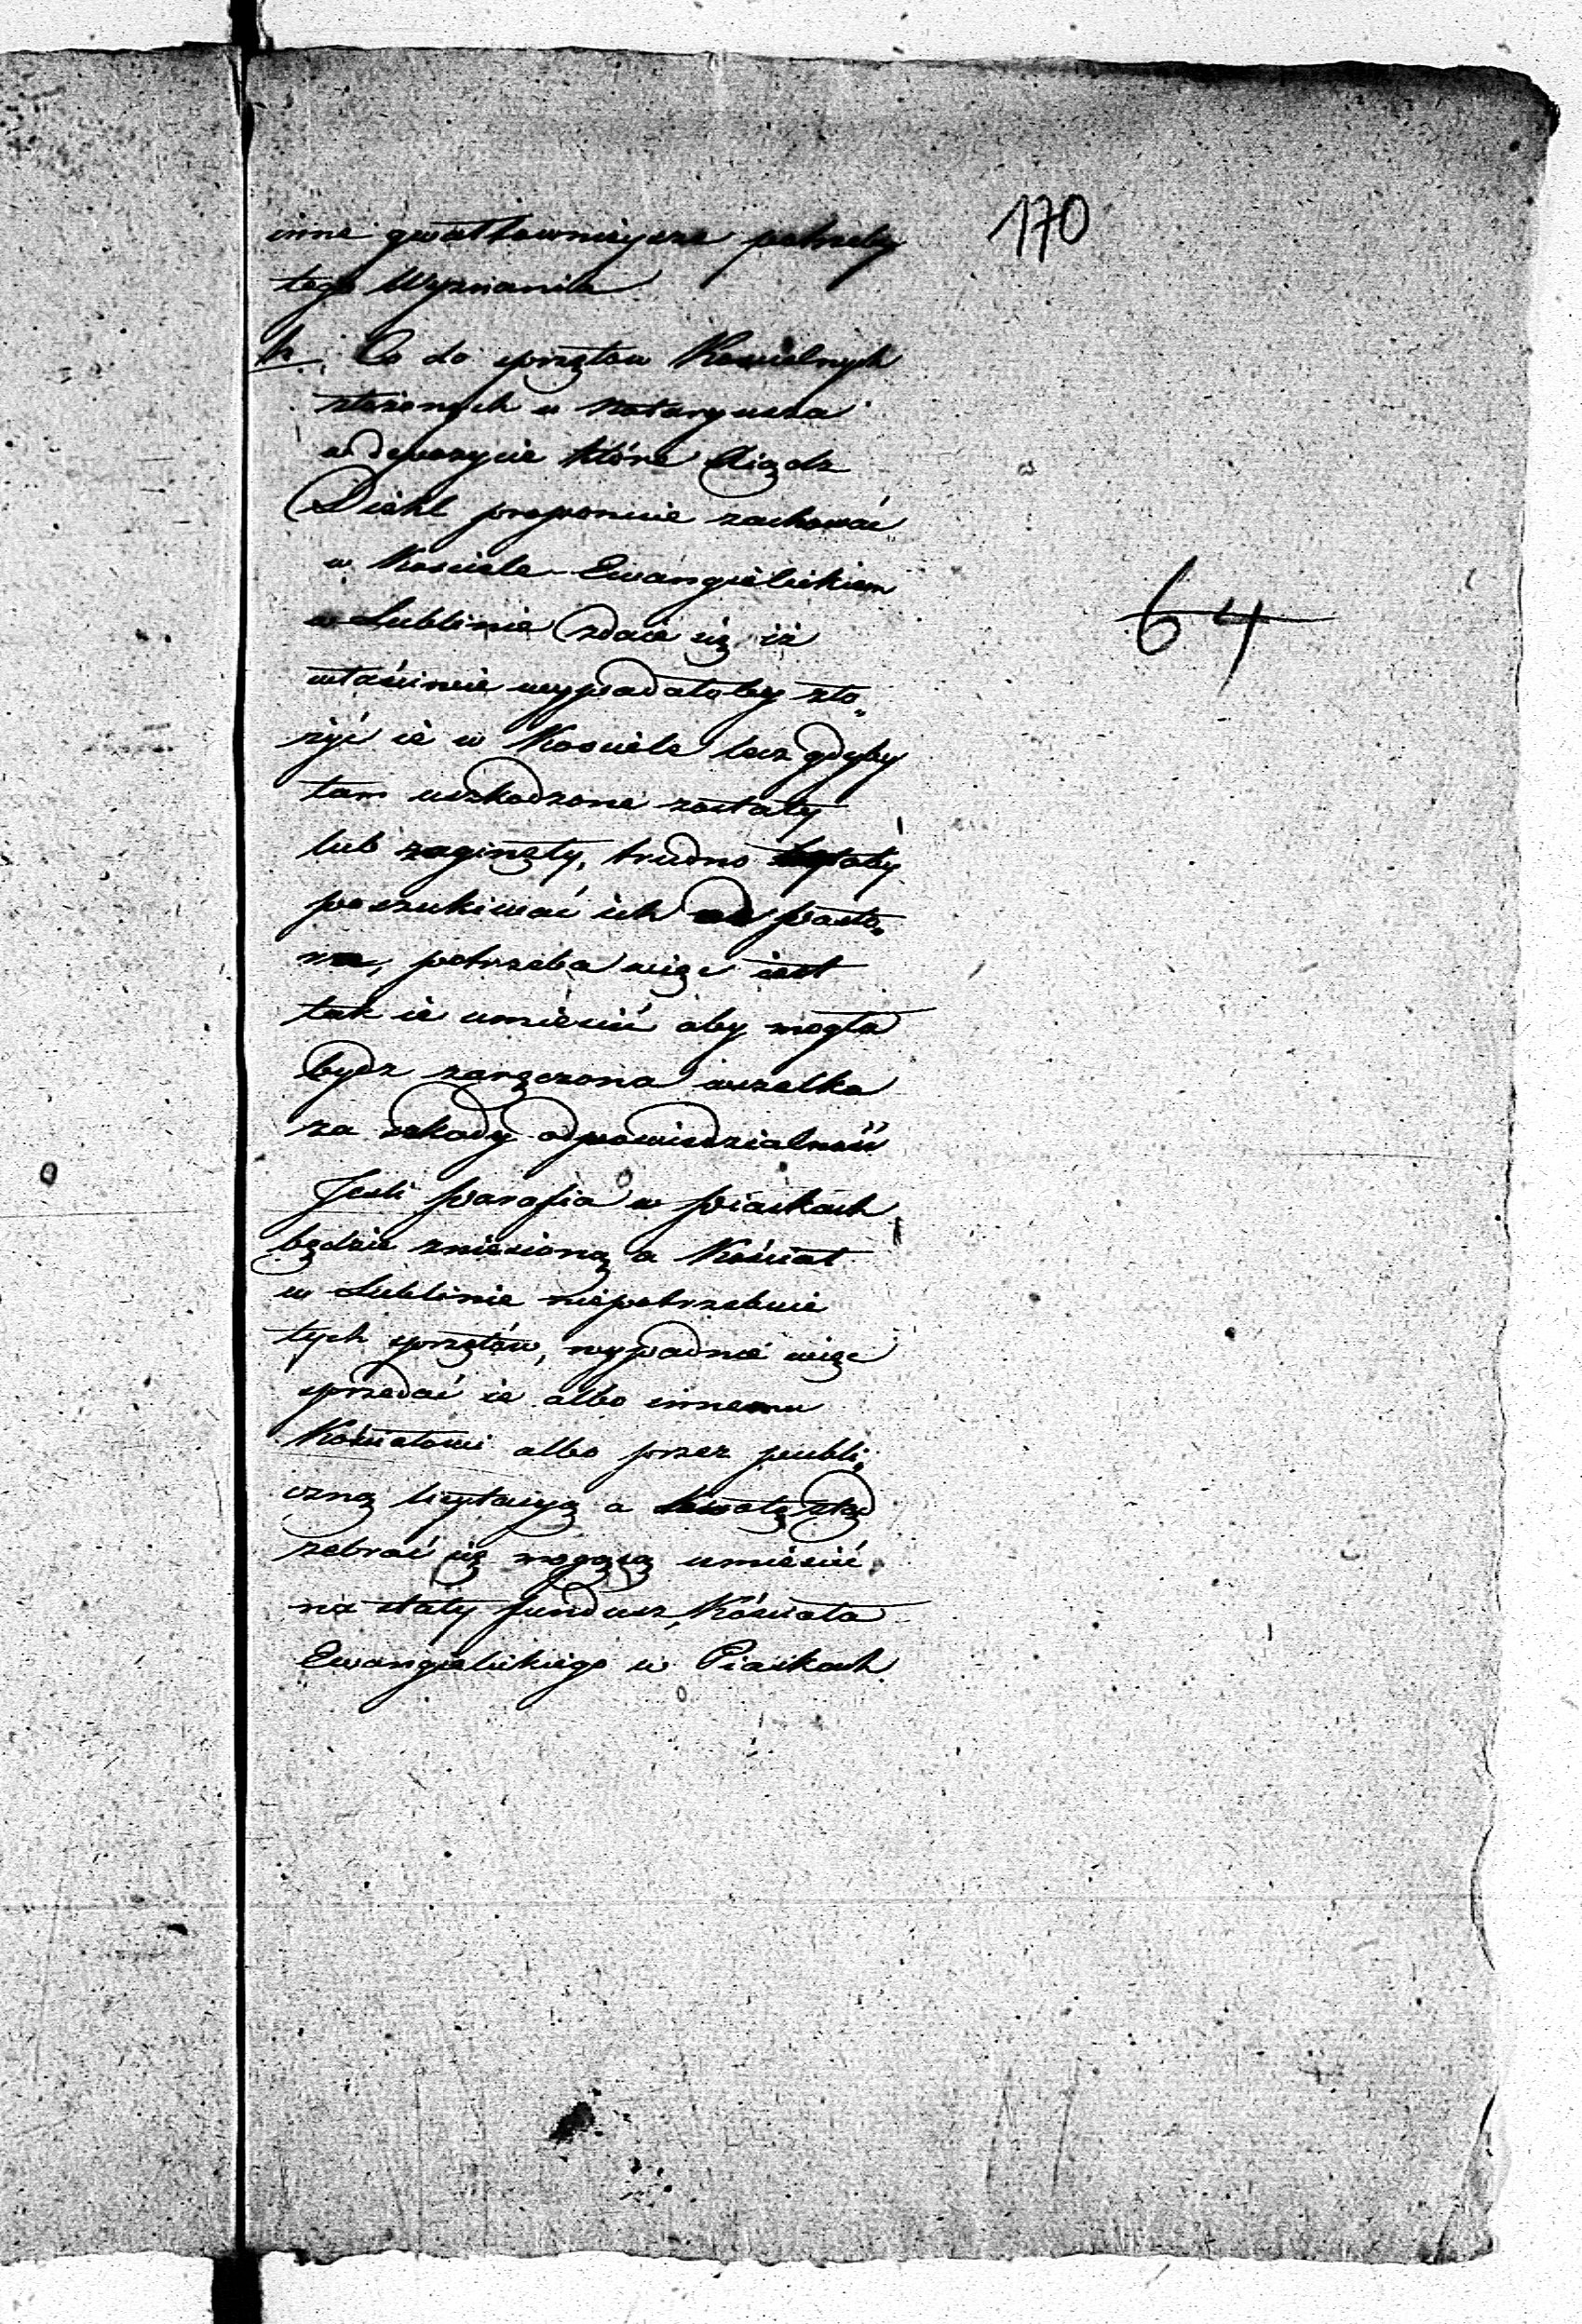 170
inne gwałtownieysze potrzeby
tego Wyznania
h. Co do sprzętow Koscielnych
złożonych u Notaryusza
w depozycie które Xiądz
Diehl proponuie zachować
w Kosciele Ewangielickiem
w Lublinie zdaie się iż
właściwie wypadałoby zło„
żyć ie w Kosciele lecz gdyby
tam uszkodzone zostały
lub zaginęły, trudno byłoby
poszukiwać ich od Pasto„
ra, potrzeba więc iest
tak ie umieścić aby mogła
bydz zaręczona wszelka
za szkody odpowiedzialność
Jeśli Parafia w Piaskach
będzie zniesioną a Kościoł
w Lublinie niepotrzebuie
tych sprzętów, wypadnie więc
sprzedać ie albo innemu
Kościołowi albo przez publi„
czną licytacyą a kwotę ztąd
zebrać się mogącą umieścić
na stały fundusz Kościoła
Ewangielickiego w Piaskach
64